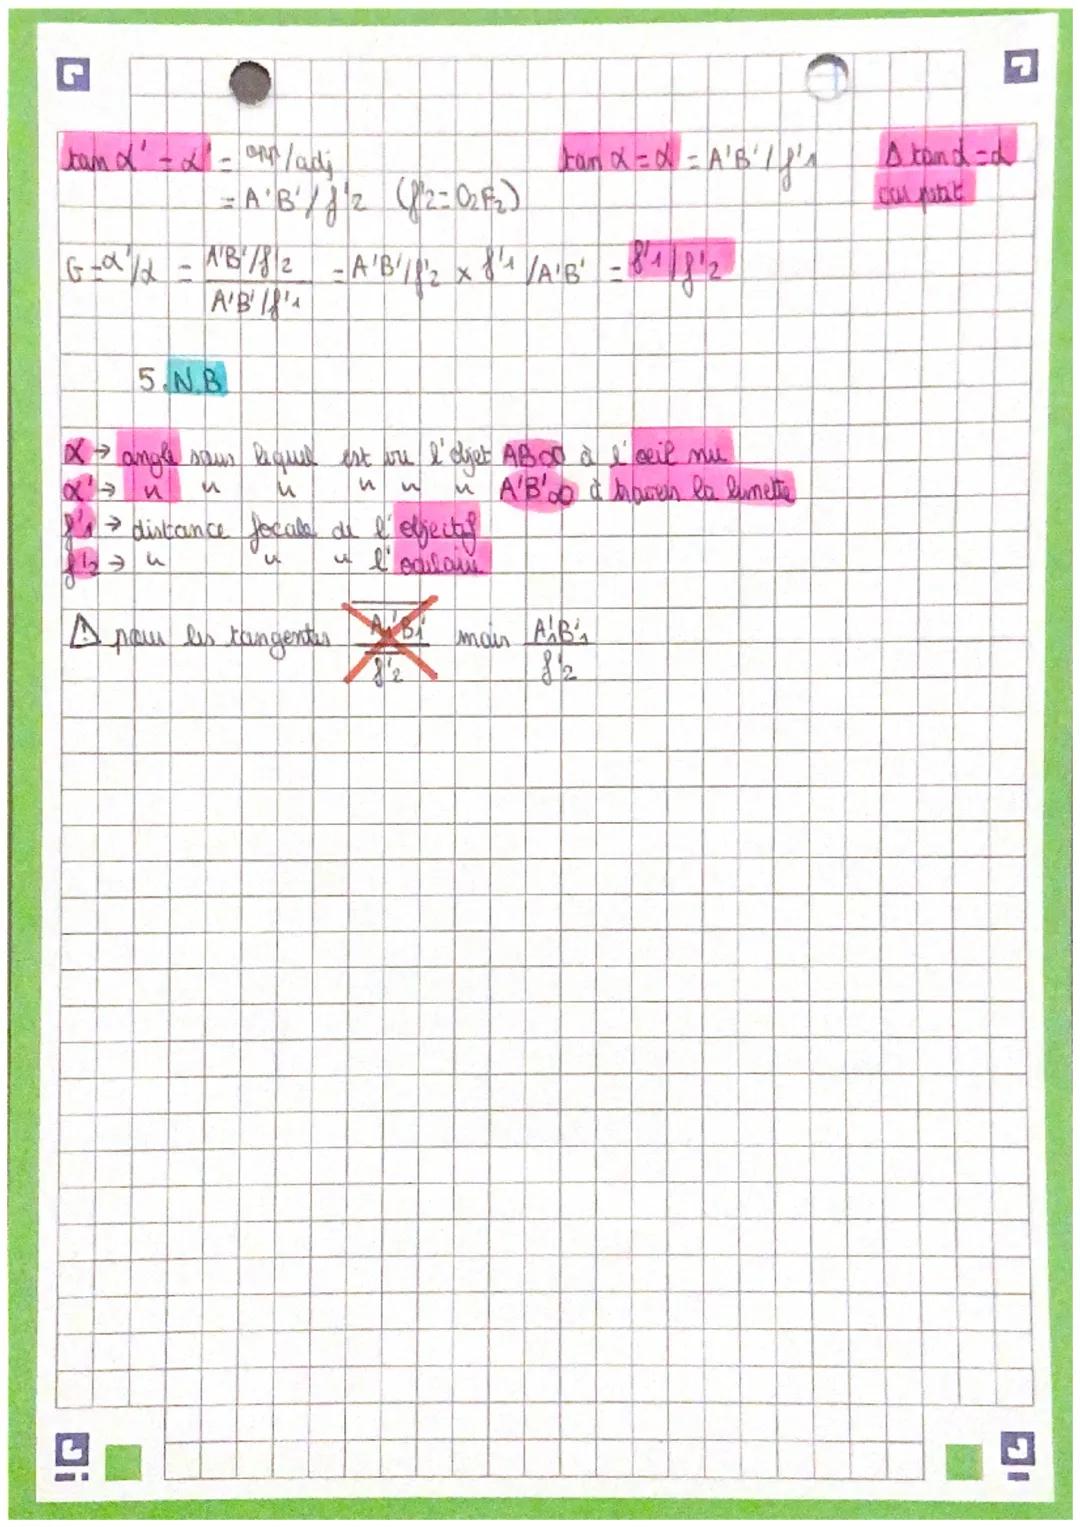 tan α' = α' = opp/adj tan α = α = A'B'/f'1 Δ tan α = α
= A'B'/f'2 (f'2=O2F2) car petit
G = α'/α = A'B'/f'2 / A'B'/f'1 = A'B'/f'2 x f'1/A'B' = f'1/f'2
5. N.B
α → angle sous lequel est vu l'objet AB∞ à l'œil nu
α' → " " " " " " A'B'∞ à travers la lunette
f'1 → distance focale de l'objectif
f'2 → " " " l'oculaire
⚠ pour les tangentes A1'B1' / f'2 mais A'1B'1 / f'2